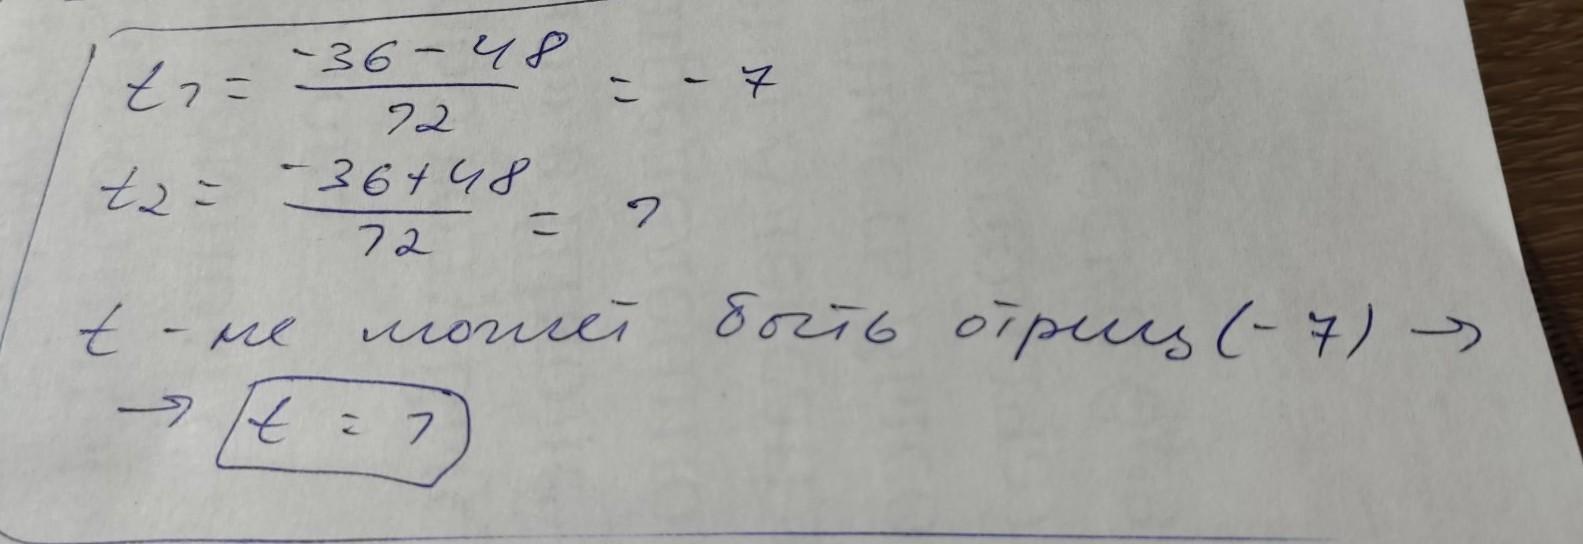 t1 = (-36 - 48)/12 = -7
t2 = (-36 + 48)/12 = 1
t - не может быть отриц (-7) →
→ t = 1